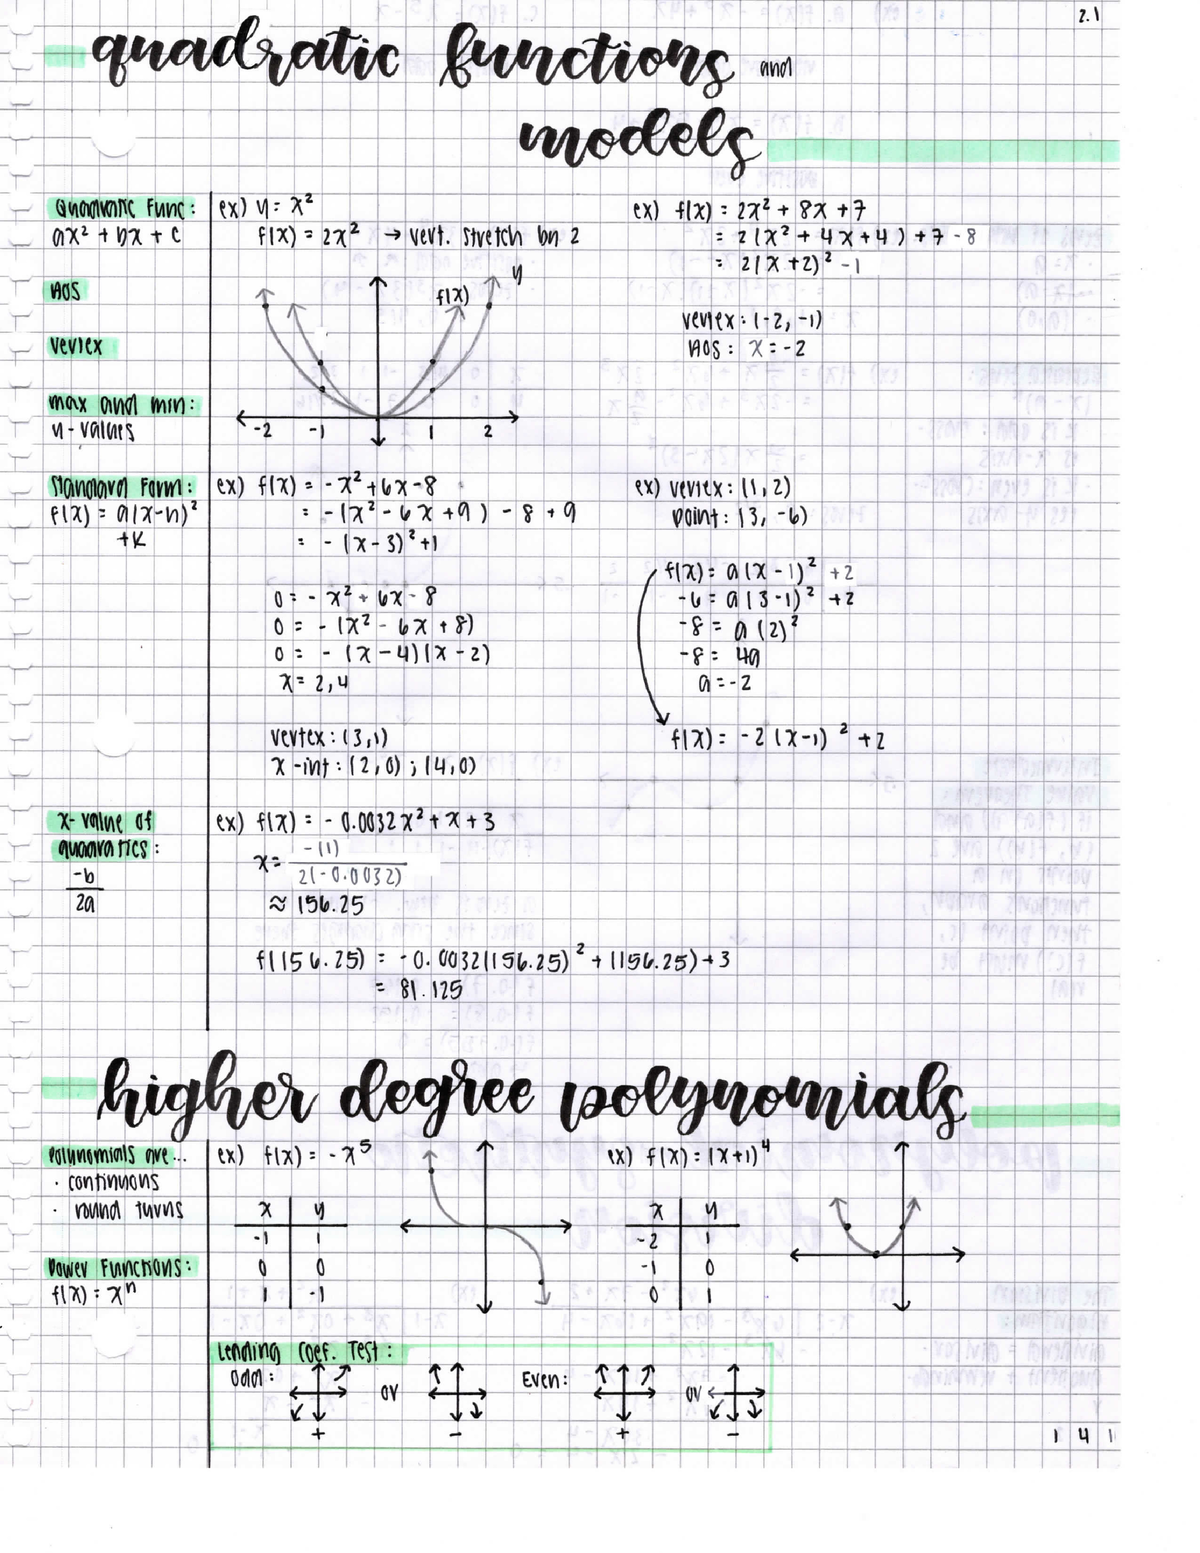 2.1
quadratic functions and
models
Quadratic Func:
ax² + bx + c
AOS
vertex
max and min:
y-values
ex) y = x²
f(x) = 2x² → vert. stretch by 2
y
f(x)
-2 -1 1 2
ex) f(x) = 2x² + 8x + 7
= 2(x² + 4x + 4) + 7 - 8
= 2(x + 2)² - 1
vertex: (-2, -1)
AOS: x = -2
Standard Form:
f(x) = a(x-h)²
+k
ex) f(x) = -x² + 6x - 8
= -(x² - 6x + 9) - 8 + 9
= -(x - 3)² + 1
0 = -x² + 6x - 8
0 = -(x² - 6x + 8)
0 = -(x - 4)(x - 2)
x = 2, 4
vertex: (3,1)
x-int: (2,0); (4,0)
ex) vertex: (1, 2)
point: (3, -6)
f(x) = a(x - 1)² + 2
-6 = a(3 - 1)² + 2
-8 = a(2)²
-8 = 4a
a = -2
f(x) = -2(x-1)² + 2
x-value of
quadratics:
-b
2a
ex) f(x) = -0.0032x² + x + 3
x = -(1)
2(-0.0032)
≈ 156.25
f(156.25) = -0.0032(156.25)² + (156.25) + 3
= 81.125
higher degree polynomials
Polynomials are...
· continuous
· round turns
Power Functions:
f(x) = xⁿ
ex) f(x) = -x⁵
x y
-1 1
0 0
1 -1
ex) f(x) = (x+1)⁴
x y
-2 1
-1 0
0 1
Leading Coef. Test:
Odd: or Even: or
+ - + -
1 4 1